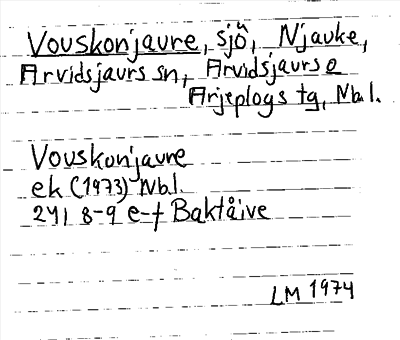 Vouskonjaure, sjö, Njauke,
Arvidsjaurs sn, Arvidsjaurs o
Arjeplogs tg, Nb.l.
Vouskonjaure
ek (1973) Nbl.
24I 8-9 e-f Baktåive
LM 1974